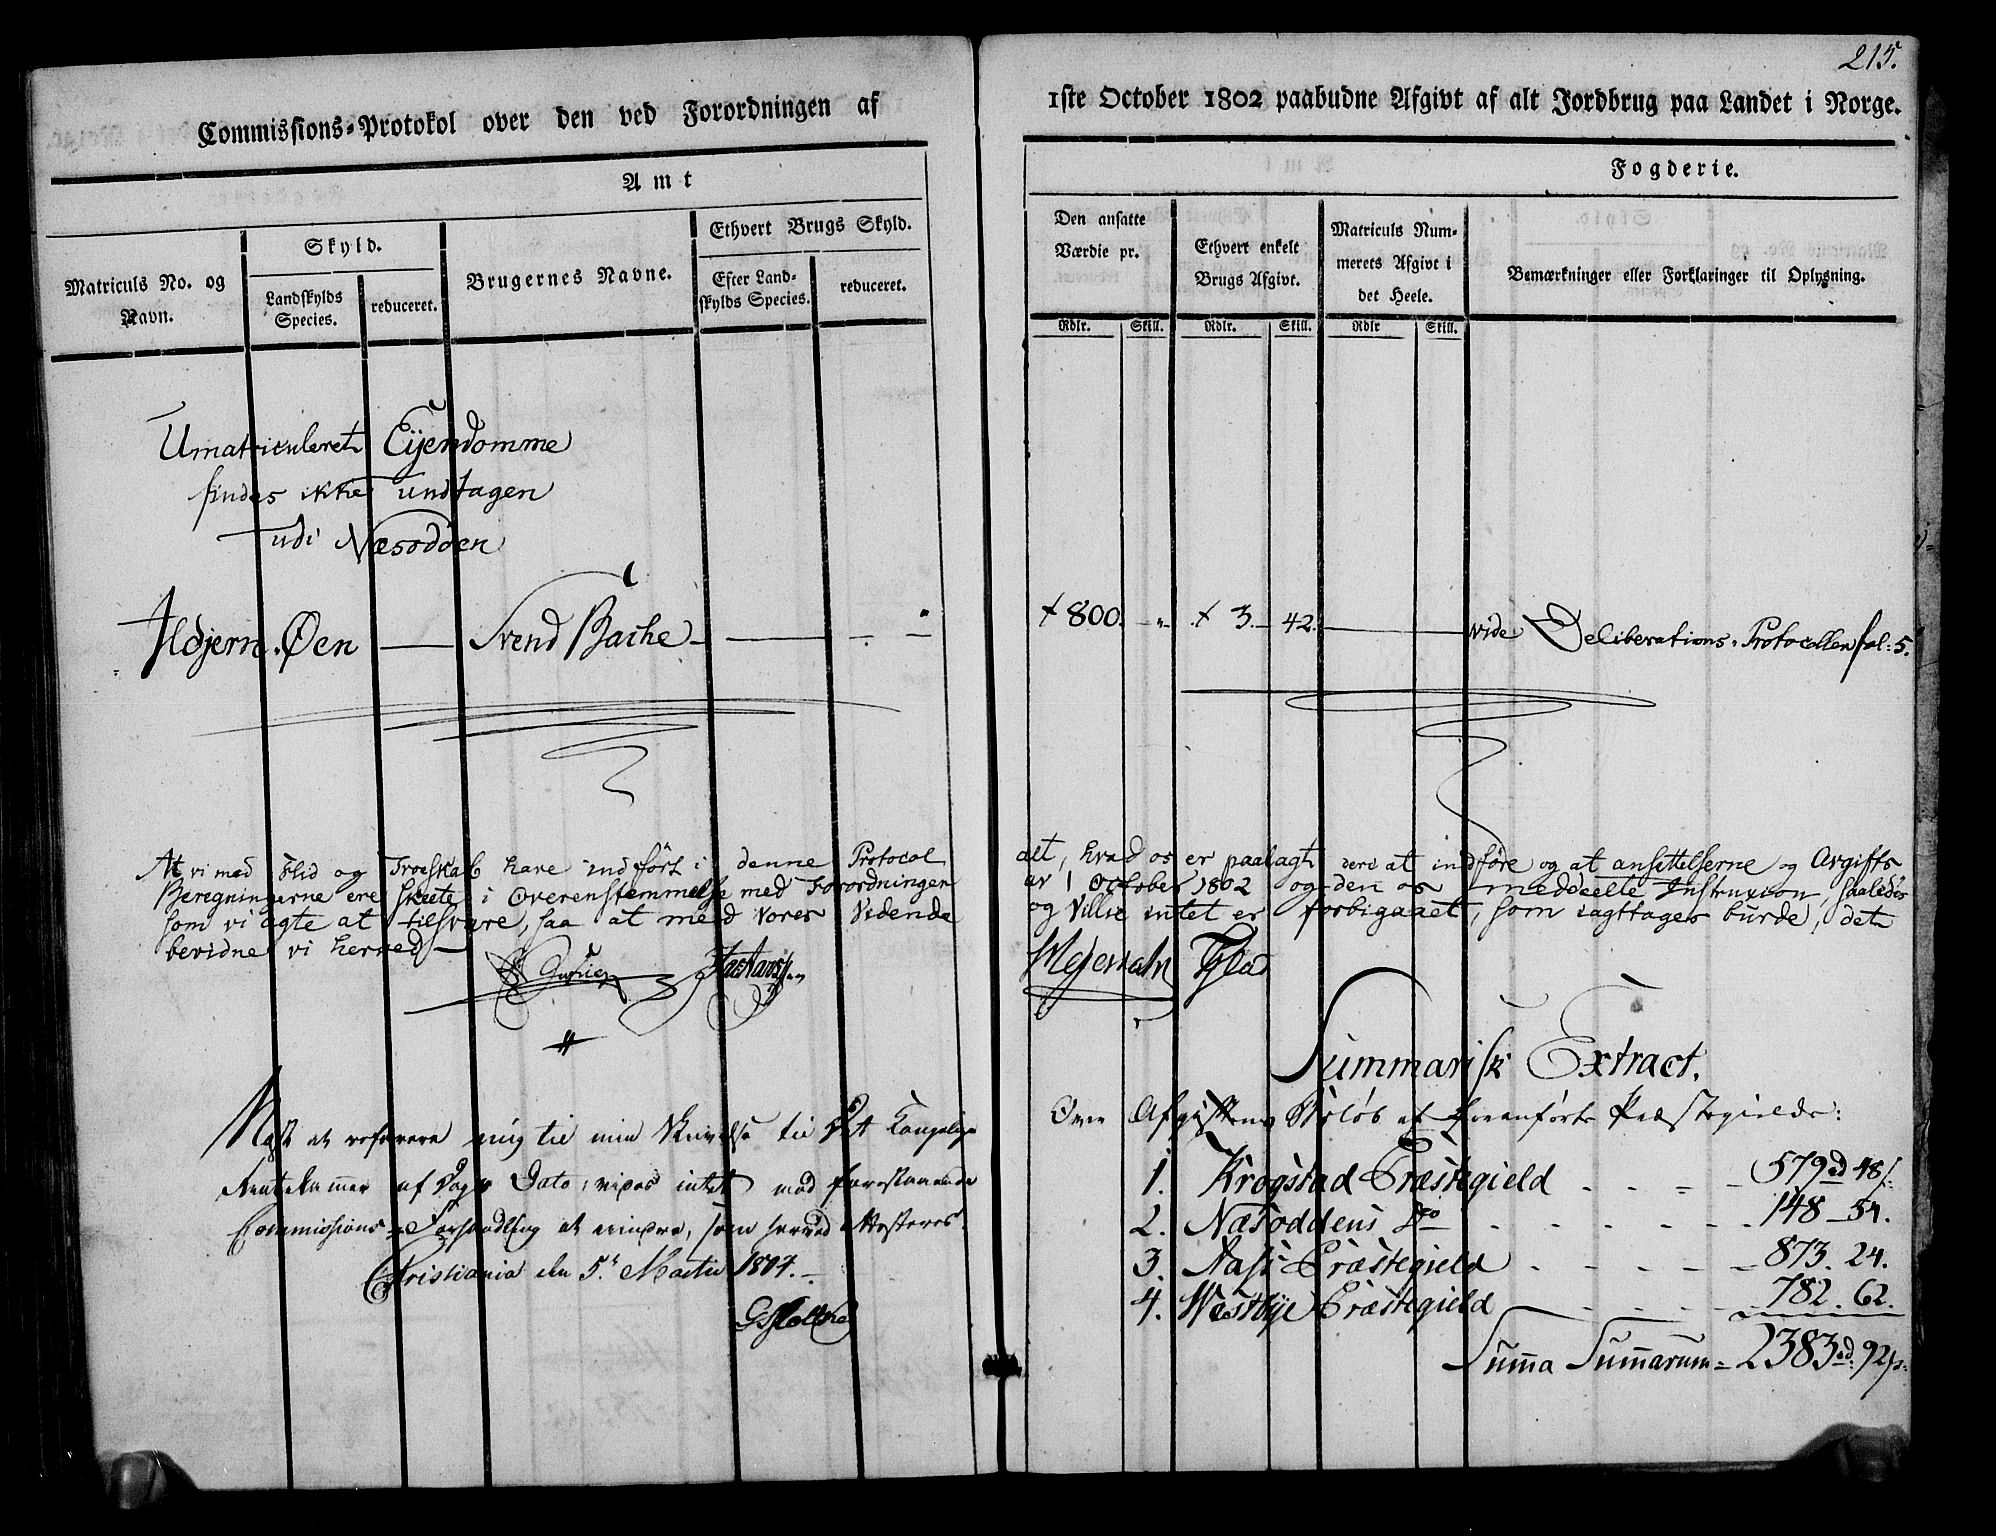 215.
Commissions-Protokol over den ved Forordningen af 1ste October 1802 paabudne Afgivt af alt Jordbrug paa Landet i Norge.
Amt
Fogderie.
Matriculs No. og Navn.
Skyld.
Landskylds Species.
reduceret.
Brugernes Navne.
Ethvert Brugs Skyld.
Efter Landskylds Species.
reduceret.
Den ansatte Værdie pr.
Rdlr. Skill.
Ethvert enkelt Brugs Afgivt.
Rdlr. Skill.
Matriculs Nummerets Afgivt i det Heele.
Rdlr Skill.
Bemærkninger eller Forklaringer til Oplysning.
Umatriculeret Eijendomme
findes ikke undtagen
udi Næsodden
Ildjern-Øen — Svend Bache — 800. 3. 42. vide Deliberations-Protocollen fol: 5.
At vi med Flid og Troeskab have indført i denne Protocol alt, hvad os er paalagt deri at indføre og at ansettelserne og Avgifts
Beregningerne ere skeete i Overenstemmelse med Forordningen av 1 October 1802 og den os meddeelte Instruxion, saaledes
som vi agte at tilsvare, saa at med vores Vidende og Villie intet er forbigaaet, som iagttages burde, det
bevidne vi herved
Summarisk Extract.
Over Afgiftens Beløb af foranførte Præstegielde:
1. Krogstad Præstegield 579 rd 48 s:
2. Næsoddens do 148 - 54.
3. Aass Præstegield 873. 24.
4. Westbye Præstegield 782. 62.
Summa Summarum = 2383 rd: 92 s:
Næst at referere mig til min Skrivelse til Det Kongelige
Rentekammer af Dags Dato, vides intet med forestaaende
Commissions-Forhandling at erindre, som herved attesteres.
Christiania den 5te Martii 1804.
G Moltke